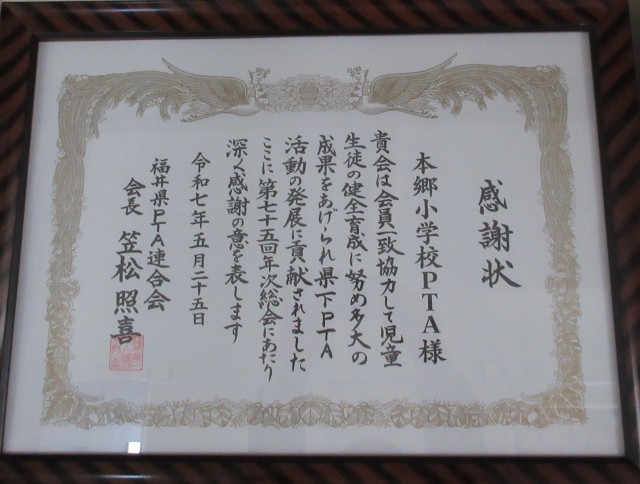 感謝状
本郷小学校PTA様
貴会は会員一致協力して児童
生徒の健全育成に努め多大の
成果をあげられ県下PTA
活動の発展に貢献されました
ここに第七十五回年次総会にあたり
深く感謝の意を表します
令和七年五月二十五日
福井県PTA連合会
会長 笠松照喜